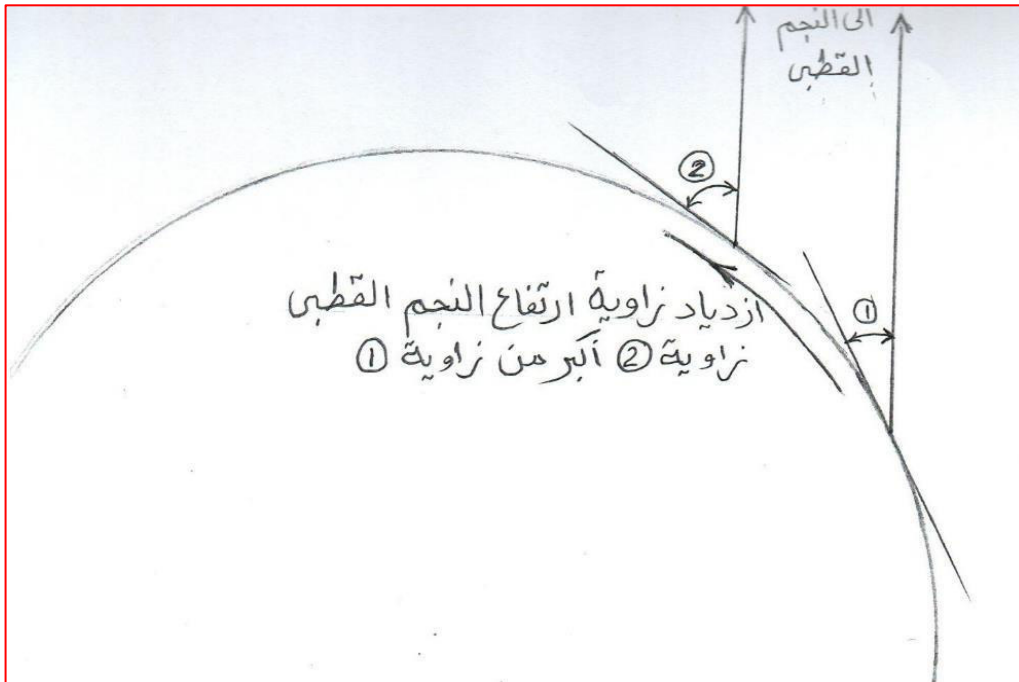 الى النجم
القطبى
②
①
ازدياد زاوية ارتفاع النجم القطبى
زاوية ② أكبر من زاوية ①